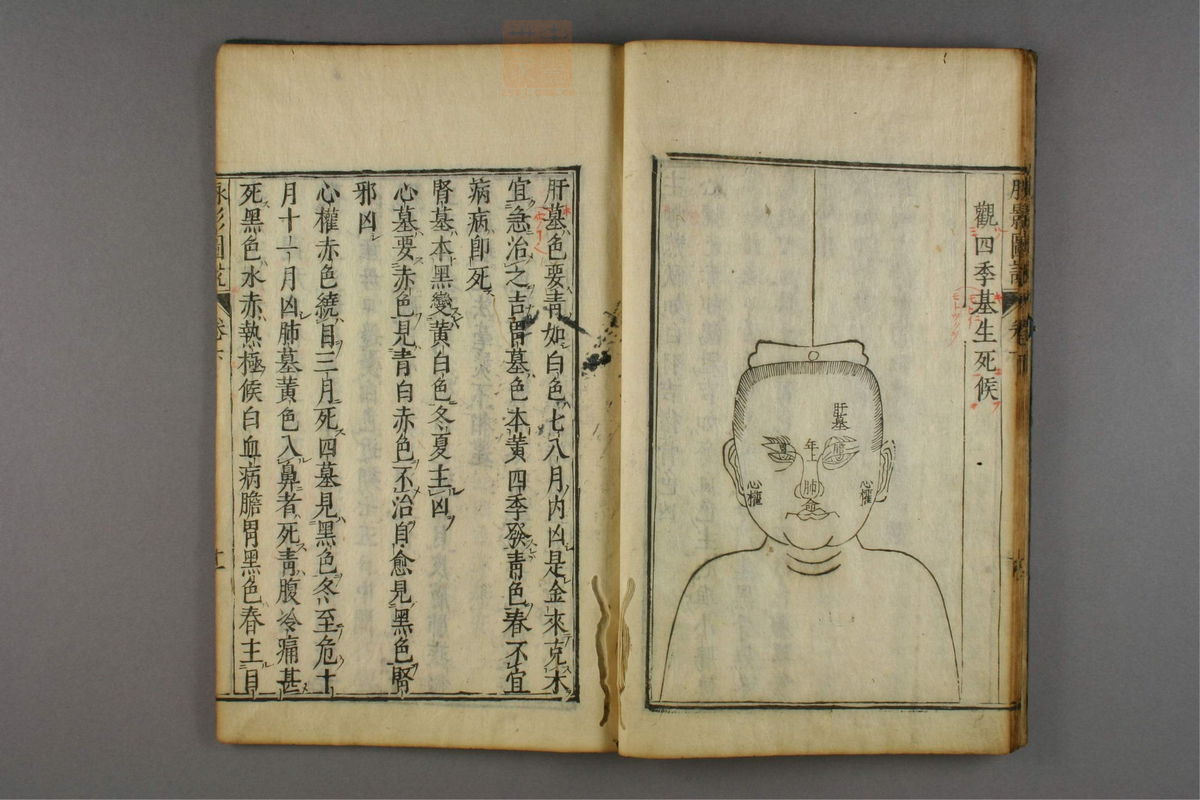 觀四季基生死候
肝墓
年上
肺
命
心權
心權
肝墓色要青如白色七八月内凶是金來克木
宜急治之吉胃墓色本黃四季發青色春不宜
病病卽死
腎墓本黑變黃白色冬夏主凶
心墓要赤色見青白赤色不治自愈見黑色腎
邪凶
心權赤色繞目三月死四墓見黑色冬至危十
月十一月凶肺墓黃色入鼻者死青腹冷痛甚
死黑色水赤熱極候白血病膽胃黑色春主目